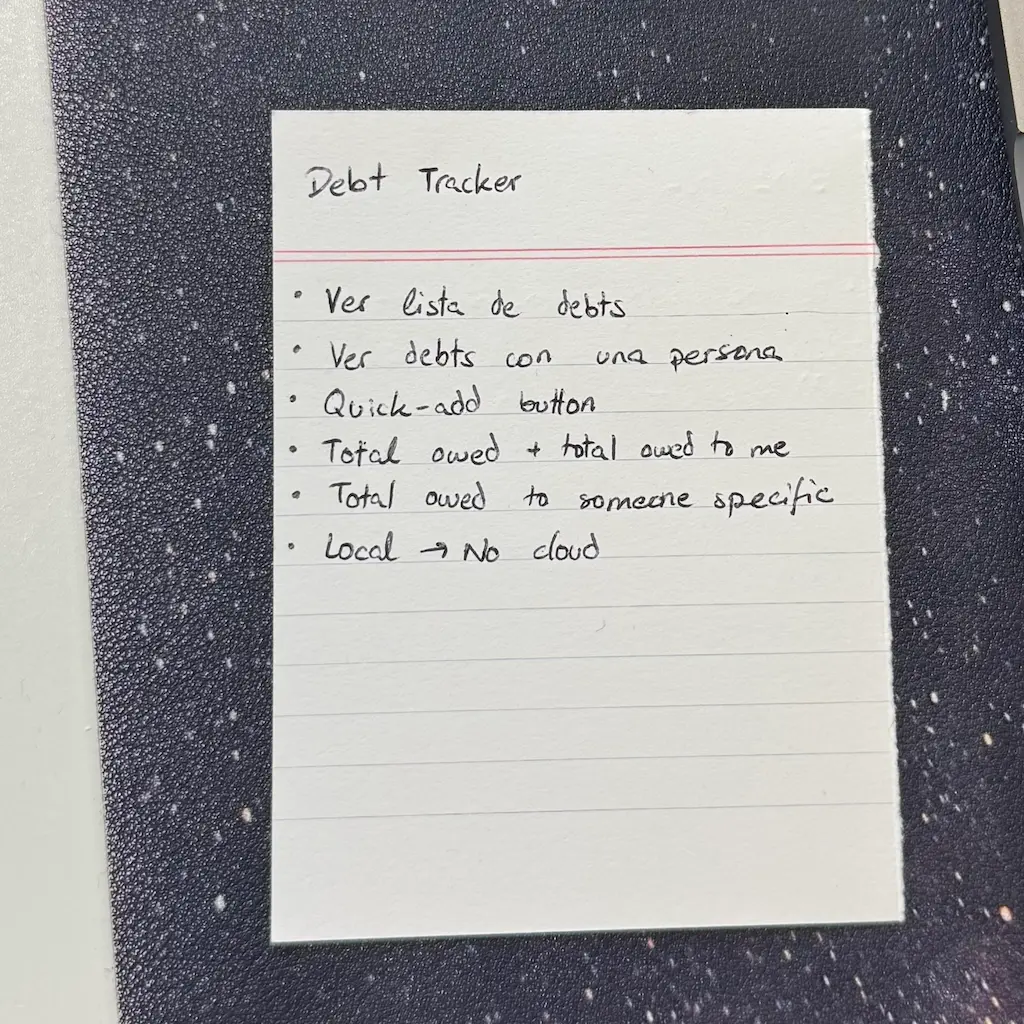 Debt Tracker
• Ver lista de debts
• Ver debts con una persona
• Quick-add button
• Total owed + total owed to me
• Total owed to someone specific
• Local → No cloud